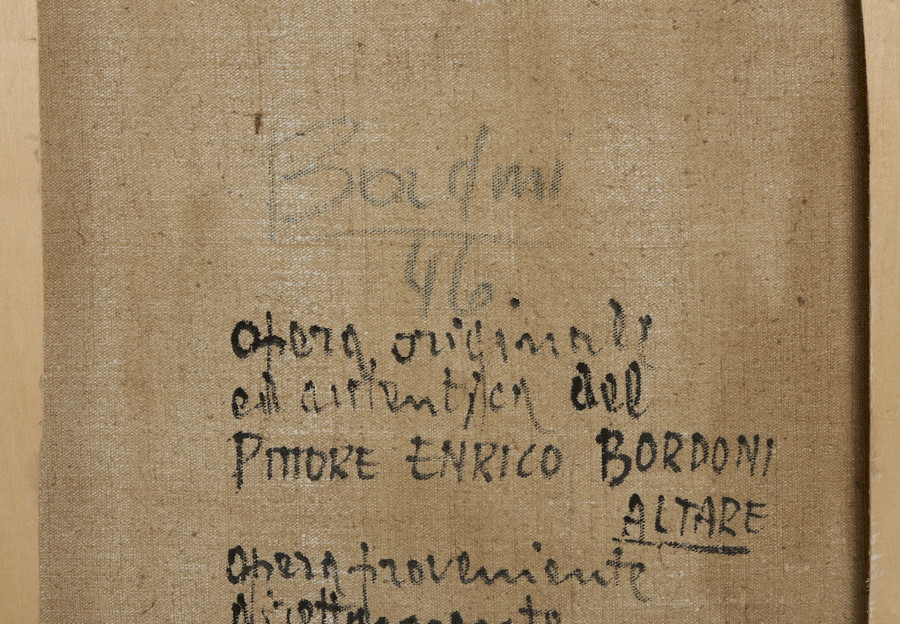 Bordoni
46.
opera originale
ed autentica del
PITTORE ENRICO BORDONI
ALTARE
opera proveniente
direttamente